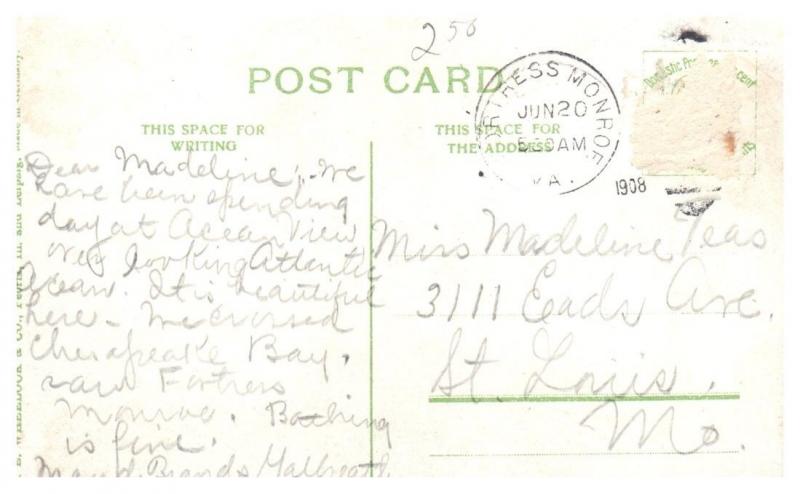 250
POST CARD
THIS SPACE FOR
WRITING
THIS SPACE FOR
THE ADDRESS
FORTRESS MONROE
JUN 20
AM
VA.
1908
Dear Madeline; We
have been spending
day at Ocean View
over looking Atlantic
Ocean. It is beautiful
here - We crossed
Chesapeake Bay,
saw Fortress
Monroe. Bathing
is fine.
Miss Madeline Yeas
3111 Eads Ave.
St. Louis,
Mo.
WHEELOCK & CO., Peoria, Ill. and Leipzig, Made in Germany.